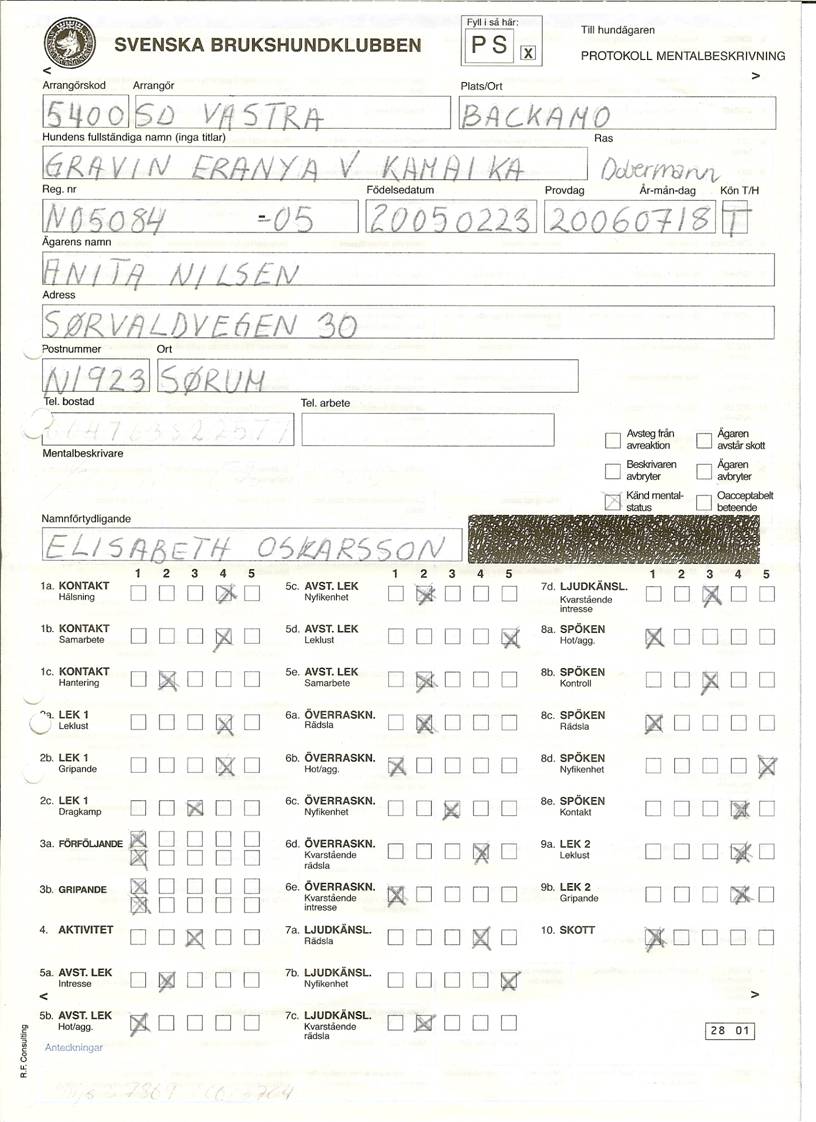 Fyll i så här:
P S X
Till hundägaren
SVENSKA BRUKSHUNDKLUBBEN
PROTOKOLL MENTALBESKRIVNING
< >
Arrangörskod Arrangör Plats/Ort
5400 SD VÄSTRA BACKAMO
Hundens fullständiga namn (inga titlar) Ras
GRAVIN ERANYA V KAMAIKA Dobermann
Reg. nr Födelsedatum Provdag År-mån-dag Kön T/H
N05084 -05 20050223 20060718 T
Ägarens namn
ANITA NILSEN
Adress
SØRVALDVEGEN 30
Postnummer Ort
N1923 SØRUM
Tel. bostad Tel. arbete
Mentalbeskrivare
Avsteg från avreaktion
Ägaren avstår skott
Beskrivaren avbryter
Ägaren avbryter
Känd mental-status
Oacceptabelt beteende
Namnförtydligande
ELISABETH OSKARSSON
1 2 3 4 5 1 2 3 4 5 1 2 3 4 5
1a. KONTAKT Hälsning
1b. KONTAKT Samarbete
1c. KONTAKT Hantering
2a. LEK 1 Leklust
2b. LEK 1 Gripande
2c. LEK 1 Dragkamp
3a. FÖRFÖLJANDE
3b. GRIPANDE
4. AKTIVITET
5a. AVST. LEK Intresse
5b. AVST. LEK Hot/agg.
5c. AVST. LEK Nyfikenhet
5d. AVST. LEK Leklust
5e. AVST. LEK Samarbete
6a. ÖVERRASKN. Rädsla
6b. ÖVERRASKN. Hot/agg.
6c. ÖVERRASKN. Nyfikenhet
6d. ÖVERRASKN. Kvarstående rädsla
6e. ÖVERRASKN. Kvarstående intresse
7a. LJUDKÄNSL. Rädsla
7b. LJUDKÄNSL. Nyfikenhet
7c. LJUDKÄNSL. Kvarstående rädsla
7d. LJUDKÄNSL. Kvarstående intresse
8a. SPÖKEN Hot/agg.
8b. SPÖKEN Kontroll
8c. SPÖKEN Rädsla
8d. SPÖKEN Nyfikenhet
8e. SPÖKEN Kontakt
9a. LEK 2 Leklust
9b. LEK 2 Gripande
10. SKOTT
< >
28 01
Anteckningar
R.F. Consulting